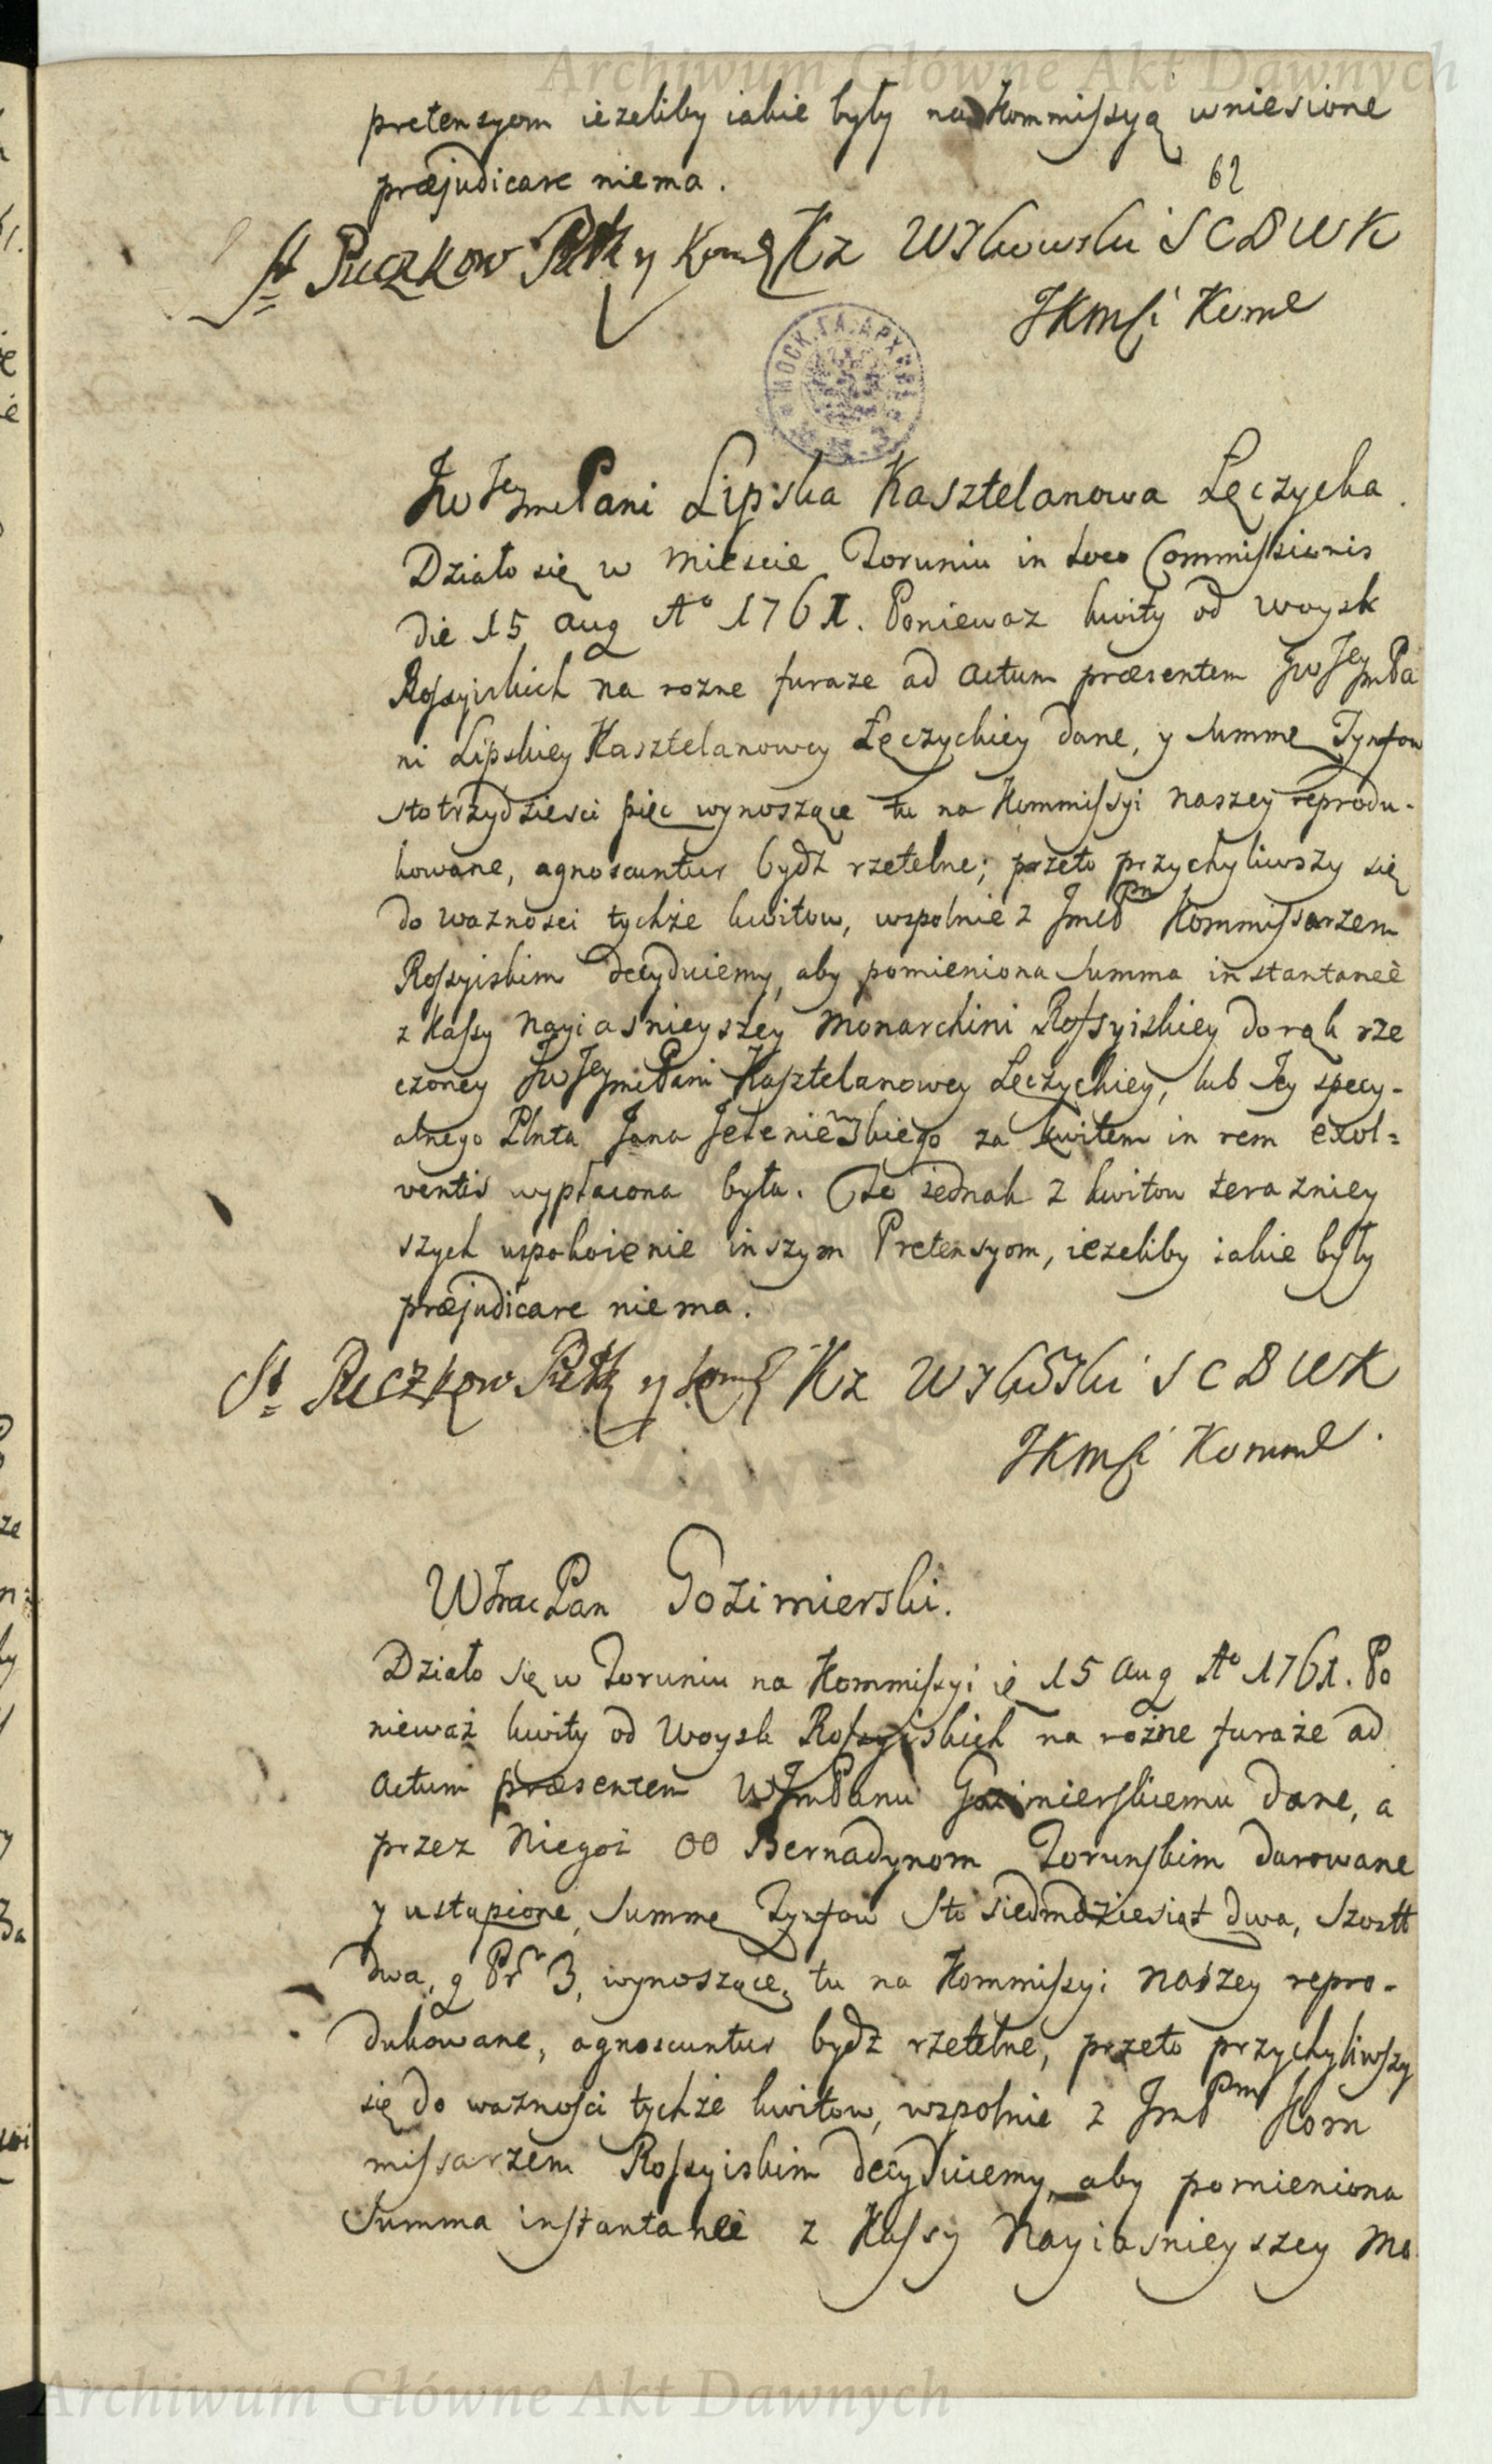 Archiwum Główne Akt Dawnych
pretensyom ieżeliby iakie były na Kommissyą wniesione
præjudicare niema.
62
St Puczkow Putk y Kom Kz Wykowski S C D W K
JKMsci Komm
МОСК. ГЛ. АРХИВ
Jw Jey Pani Lipska Kasztelanowa Łęczycka.
Działo się w Miescie Toruniu in Loco Commissionis
die 15 Aug Ao 1761. Poniewaz kwity od woysk
Rossyiskich na rozne furaze ad Actum præsentem Jw Jeym Pa
ni Lipskiey Kasztelanowey Łęczyckiey dane, y summę Tynfow
sto trzydziesci pięc wynoszące tu na Kommissyi naszey reprodu-
kowane, agnoscuntur bydz rzetelne; przeto przychyliwszy się
do waznosci tychże kwitow, wspolnie z Jmc Pm Kommissarzem
Rossyiskim decyduiemy, aby pomieniona summa instantaneè
z Kassy Nayiasnieyszey Monarchini Rossyiskiey do rąk rze
czoney Jw Jeymc Pani Kasztelanowey Łęczyckiey, lub Jey specy-
alnego Plnta Jana za kwitem in rem exol=
ventis wypłacona była. Co iednak z kwitow terazniey
szych uspokoienie inszym Pretensyom, ieżeliby iakie były
præjudicare niema.
St Puczkow Putk y Kom Kz Wykowski S C D W K
JKMsci Komm.
W Jmc Pan Gozimierski.
Działo się w Toruniu na Kommissyi ię 15 Aug Ao 1761. Po
nieważ kwity od Woysk Rossyiskich na rożne furaże ad
Actum præsentem W Jm Panu Gozimierskiemu dane, a
przez Niegoż OO Bernadynom Torunskim darowane
y ustąpione, summę Tynfow Sto siedmdziesiąt dwa, Szostt
dwa, g Pr 3, wynoszące, tu na Kommissyi naszey repro-
dukowane, agnoscuntur bydz rzetelne, przeto przychyliwszy
się do ważnosci tychże kwitow, wspolnie z Jm Pm Kom
missarzem Rossyiskim decyduiemy, aby pomieniona
Summa instantaneè z Kassy Nayiasnieyszey Mo
Archiwum Główne Akt Dawnych